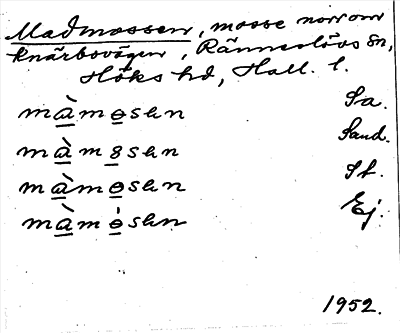 Madmossen, mosse norr om
Knärbovägen, Ränneslövs sn,
Höks hd, Hall. l.
màmosən Sa.
màm8sən Sand.
màmosən St.
màmosən Ej.
1952.